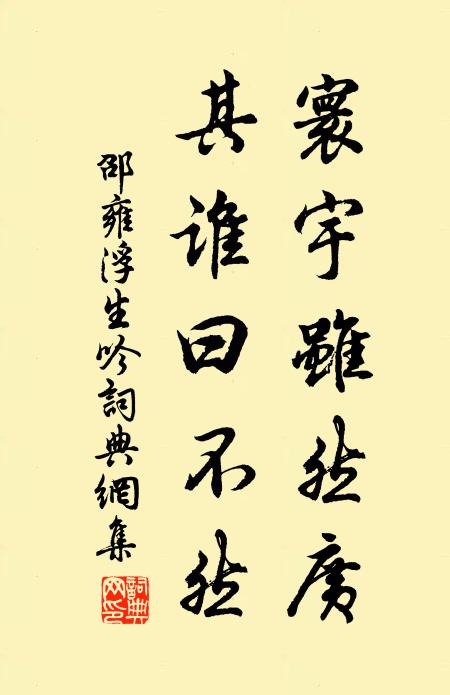 寰宇雖然廣
其誰曰不然
邵雍浮生吟詞典網集
詞典網印